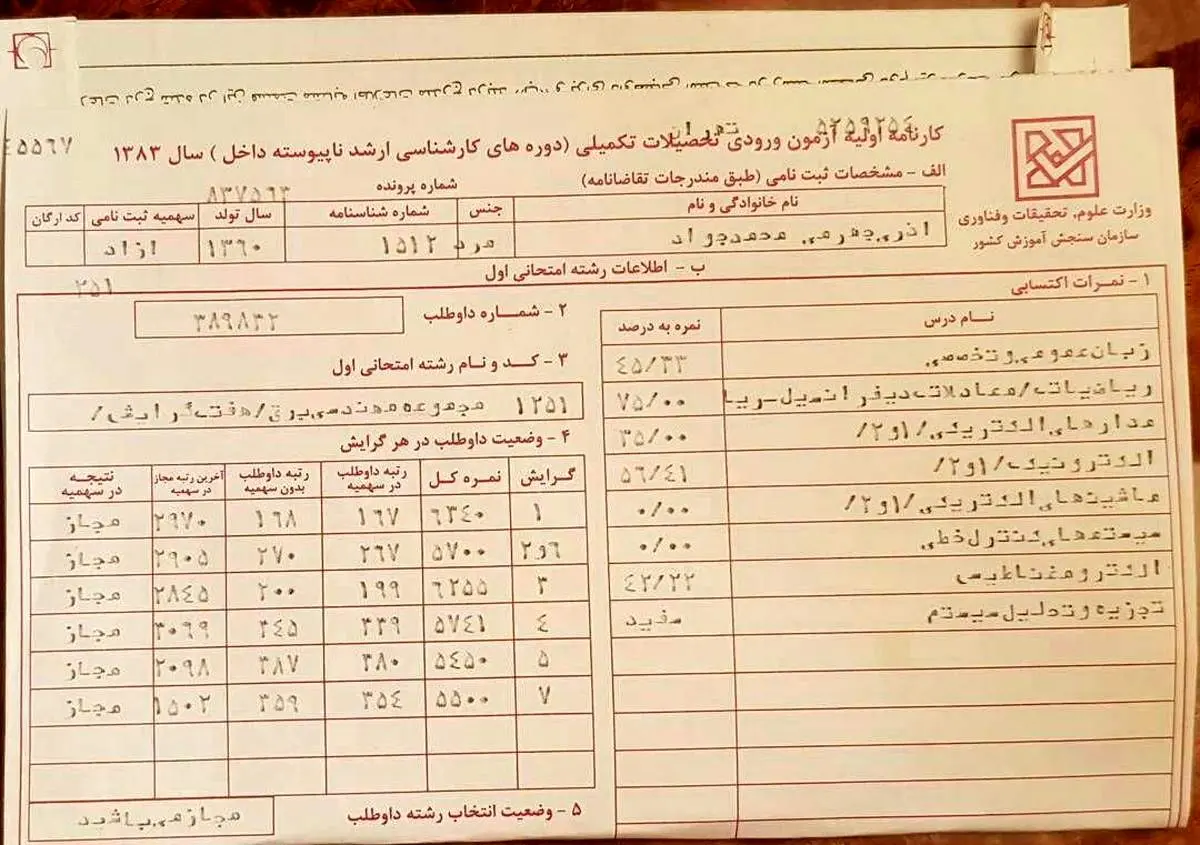 ۵۲۵۹۲۵۶ تهران
۴۵۵۶۷
کارنامه اولیه آزمون ورودی تحصیلات تکمیلی (دوره های کارشناسی ارشد ناپیوسته داخل) سال ۱۳۸۳
وزارت علوم، تحقیقات وفناوری
سازمان سنجش آموزش کشور
الف - مشخصات ثبت نامی (طبق مندرجات تقاضانامه)
شماره پرونده ۸۳۷۵۶۳
نام خانوادگی و نام جنس شماره شناسنامه سال تولد سهمیه ثبت نامی کد ارگان
اذری جهرمی محمدجواد مرد ۱۵۱۲ ۱۳۶۰ ازاد
ب - اطلاعات رشته امتحانی اول
۲۵۱
۱ - نمرات اکتسابی
نام درس نمره به درصد
زبان عمومی و تخصصی ۴۵/۳۳
ریاضیات/معادلات دیفرانسیل-ریا ۷۵/۰۰
مدارهای الکتریکی/۱و۲/ ۳۵/۰۰
الکترونیک/۱و۲/ ۵۶/۴۱
ماشینهای الکتریکی/۱و۲/ ۰/۰۰
سیستمهای کنترل خطی ۰/۰۰
الکترومغناطیس ۴۲/۲۲
تجزیه و تحلیل سیستم سفید
۲ - شماره داوطلب
۳۸۹۸۳۲
۳ - کد و نام رشته امتحانی اول
۱۲۵۱ مجموعه مهندسی برق/هفت گرایش/
۴ - وضعیت داوطلب در هر گرایش
گرایش نمره کل رتبه داوطلب در سهمیه رتبه داوطلب بدون سهمیه آخرین رتبه مجاز در سهمیه نتیجه در سهمیه
۱ ۶۳۴۰ ۱۶۷ ۱۶۸ ۲۹۷۰ مجاز
۲و۶ ۵۷۰۰ ۲۶۷ ۲۷۰ ۲۹۰۵ مجاز
۳ ۶۲۵۵ ۱۹۹ ۲۰۰ ۲۸۴۵ مجاز
۴ ۵۷۴۱ ۳۳۹ ۳۴۵ ۳۰۶۹ مجاز
۵ ۵۴۵۰ ۳۸۰ ۳۸۷ ۲۰۹۸ مجاز
۷ ۵۵۰۰ ۳۵۴ ۳۵۹ ۱۵۰۲ مجاز
۵ - وضعیت انتخاب رشته داوطلب
مجاز می باشید